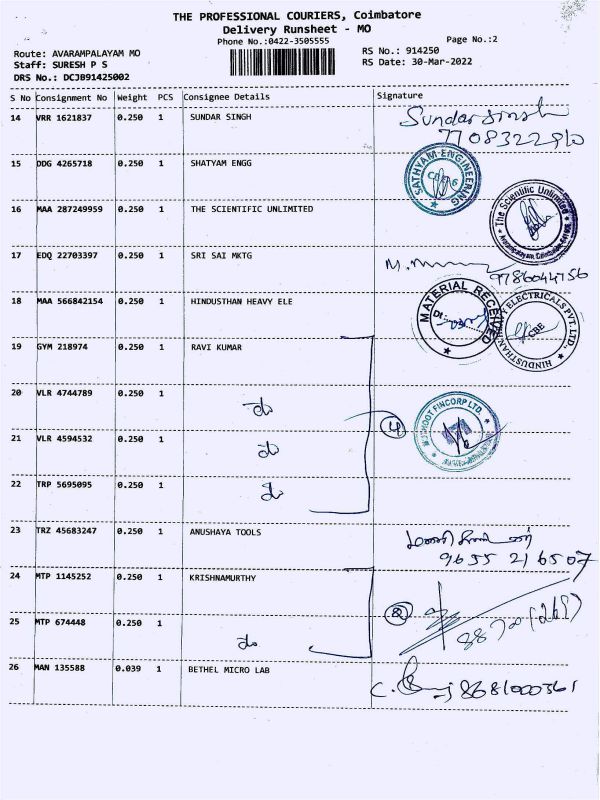 THE PROFESSIONAL COURIERS, Coimbatore
Delivery Runsheet - MO
Phone No.:0422-3505555
Page No.:2
Route: AVARAMPALAYAM MO
RS No.: 914250
Staff: SURESH P S
RS Date: 30-Mar-2022
DRS No.: DCJB91425002
S No Consignment No Weight PCS Consignee Details Signature
14 VRR 1621837 0.250 1 SUNDAR SINGH Sundar Singh
15 DDG 4265718 0.250 1 SHATYAM ENGG SATHYAM ENGINEERING
16 MAA 287249959 0.250 1 THE SCIENTIFIC UNLIMITED The Scientific Unlimited
17 EDQ 22703397 0.250 1 SRI SAI MKTG 9786044756
18 MAA 566842154 0.250 1 HINDUSTHAN HEAVY ELE MATERIAL RECEIVED ELECTRICALS PVT.LTD. HINDUSTHAN CBE
19 GYM 218974 0.250 1 RAVI KUMAR
20 VLR 4744789 0.250 1 do 4 FINCORP LTD.
21 VLR 4594532 0.250 1 do
22 TRP 5695095 0.250 1 do
23 TRZ 45683247 0.250 1 ANUSHAYA TOOLS
9655 216507
24 MTP 1145252 0.250 1 KRISHNAMURTHY
25 MTP 674448 0.250 1 do 2
26 MAN 135588 0.039 1 BETHEL MICRO LAB 8681000361